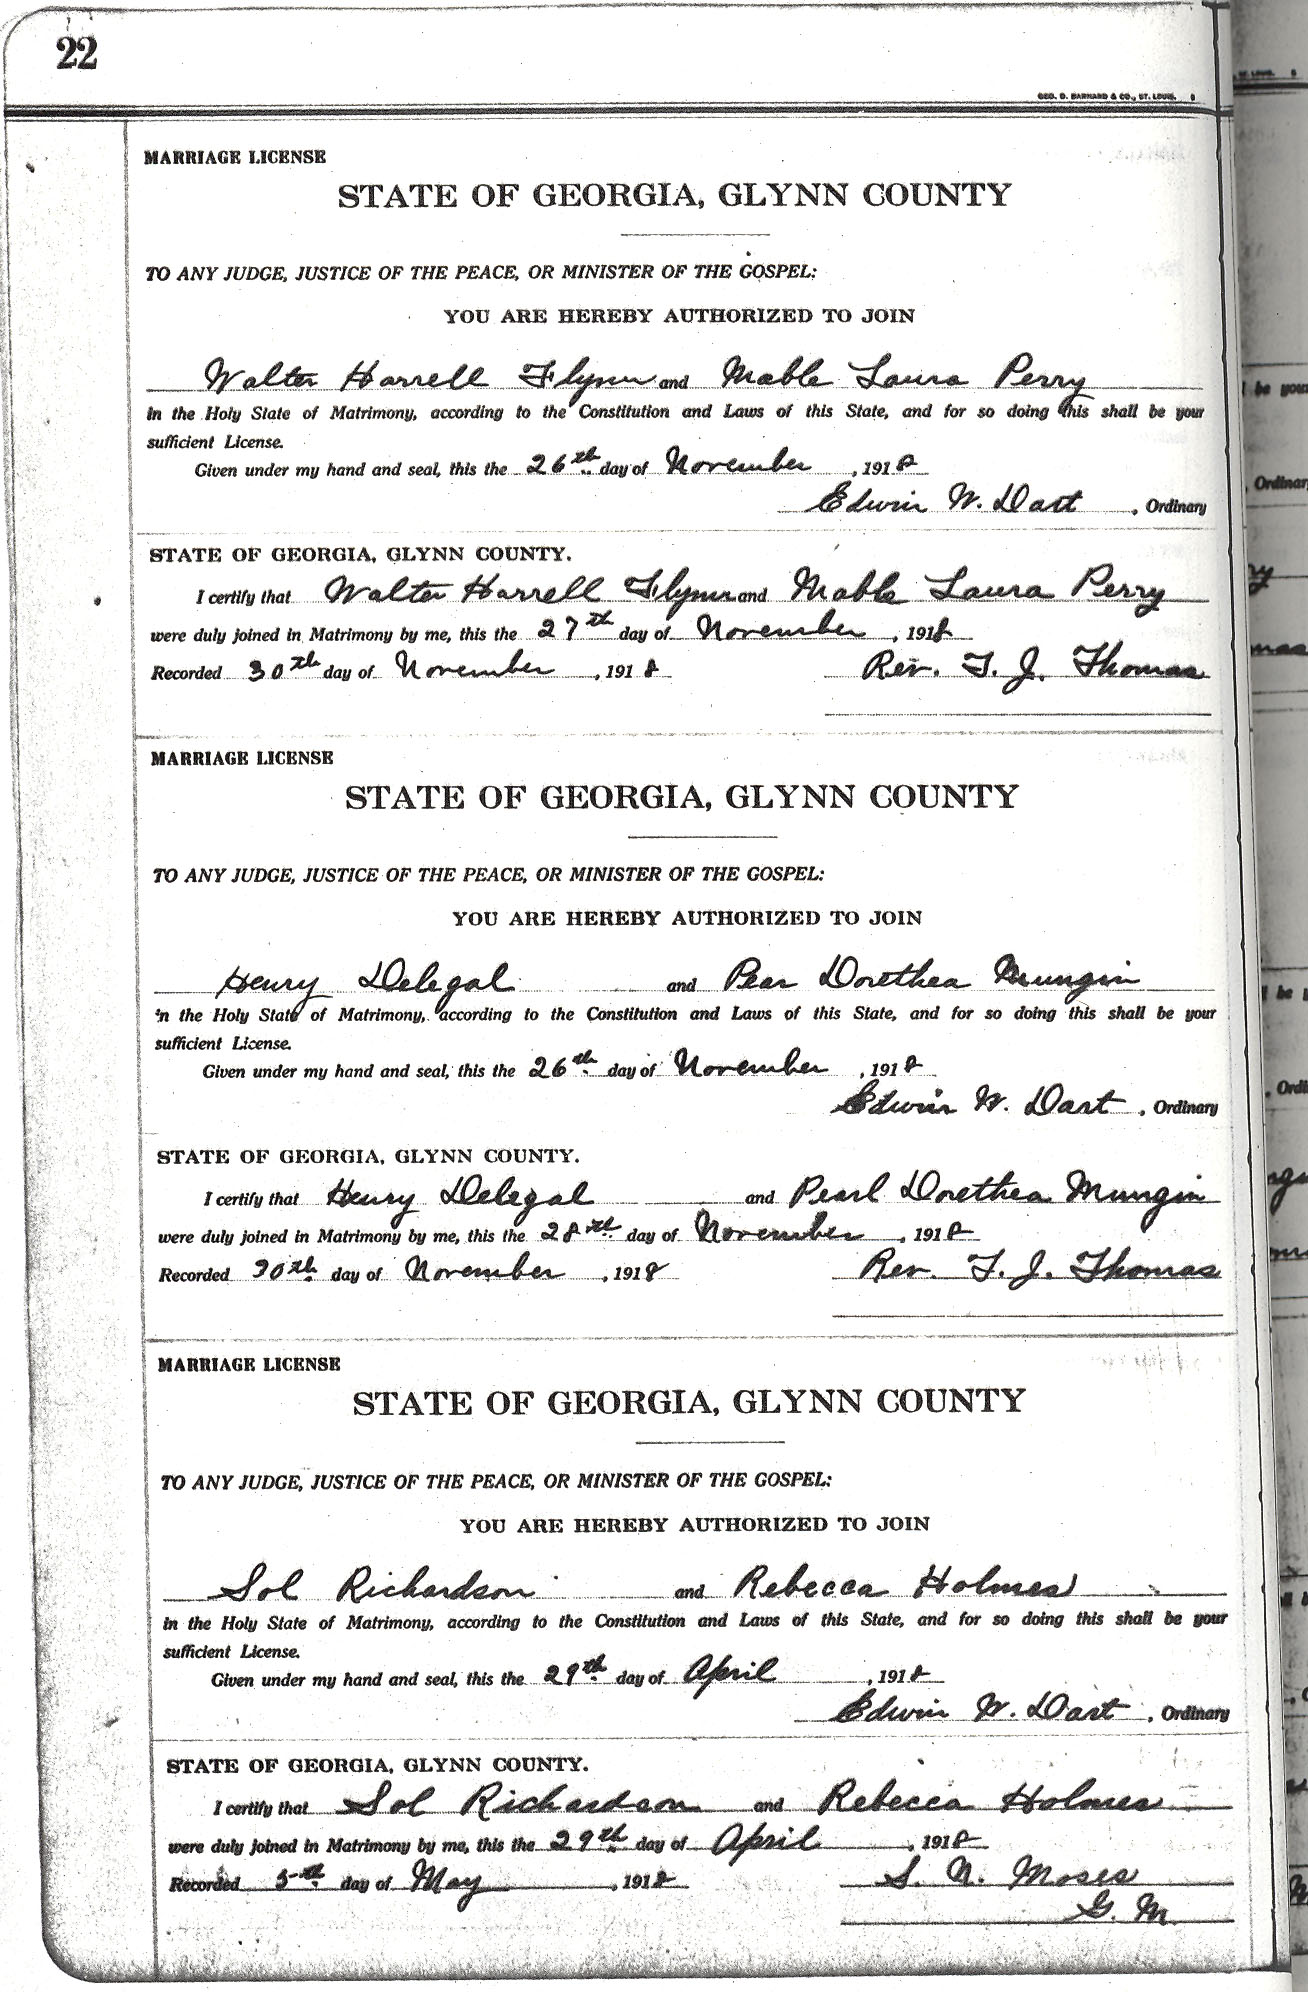 22
GEO. D. BARNARD & CO., ST. LOUIS.
MARRIAGE LICENSE
STATE OF GEORGIA, GLYNN COUNTY
TO ANY JUDGE, JUSTICE OF THE PEACE, OR MINISTER OF THE GOSPEL:
YOU ARE HEREBY AUTHORIZED TO JOIN
Walter Harrell Flynn and Mable Laura Perry
in the Holy State of Matrimony, according to the Constitution and Laws of this State, and for so doing this shall be your
sufficient License.
Given under my hand and seal, this the 26th day of November, 1918
Edwin W. Dart, Ordinary
STATE OF GEORGIA, GLYNN COUNTY.
I certify that Walter Harrell Flynn and Mable Laura Perry
were duly joined in Matrimony by me, this the 27th day of November, 1918
Recorded 30th day of November, 1918 Rev. T. J. Thomas
MARRIAGE LICENSE
STATE OF GEORGIA, GLYNN COUNTY
TO ANY JUDGE, JUSTICE OF THE PEACE, OR MINISTER OF THE GOSPEL:
YOU ARE HEREBY AUTHORIZED TO JOIN
Henry Delegal and Pear Dorethea Mungin
in the Holy State of Matrimony, according to the Constitution and Laws of this State, and for so doing this shall be your
sufficient License.
Given under my hand and seal, this the 26th day of November, 1918
Edwin W. Dart, Ordinary
STATE OF GEORGIA, GLYNN COUNTY.
I certify that Henry Delegal and Pearl Dorethea Mungin
were duly joined in Matrimony by me, this the 28th day of November, 1918
Recorded 30th day of November, 1918 Rev. T. J. Thomas
MARRIAGE LICENSE
STATE OF GEORGIA, GLYNN COUNTY
TO ANY JUDGE, JUSTICE OF THE PEACE, OR MINISTER OF THE GOSPEL:
YOU ARE HEREBY AUTHORIZED TO JOIN
Sol Richardson and Rebecca Holmes
in the Holy State of Matrimony, according to the Constitution and Laws of this State, and for so doing this shall be your
sufficient License.
Given under my hand and seal, this the 29th day of April, 1918
Edwin W. Dart, Ordinary
STATE OF GEORGIA, GLYNN COUNTY.
I certify that Sol Richardson and Rebecca Holmes
were duly joined in Matrimony by me, this the 29th day of April, 1918
Recorded 5th day of May, 1918 S. N. Moses
G. M.